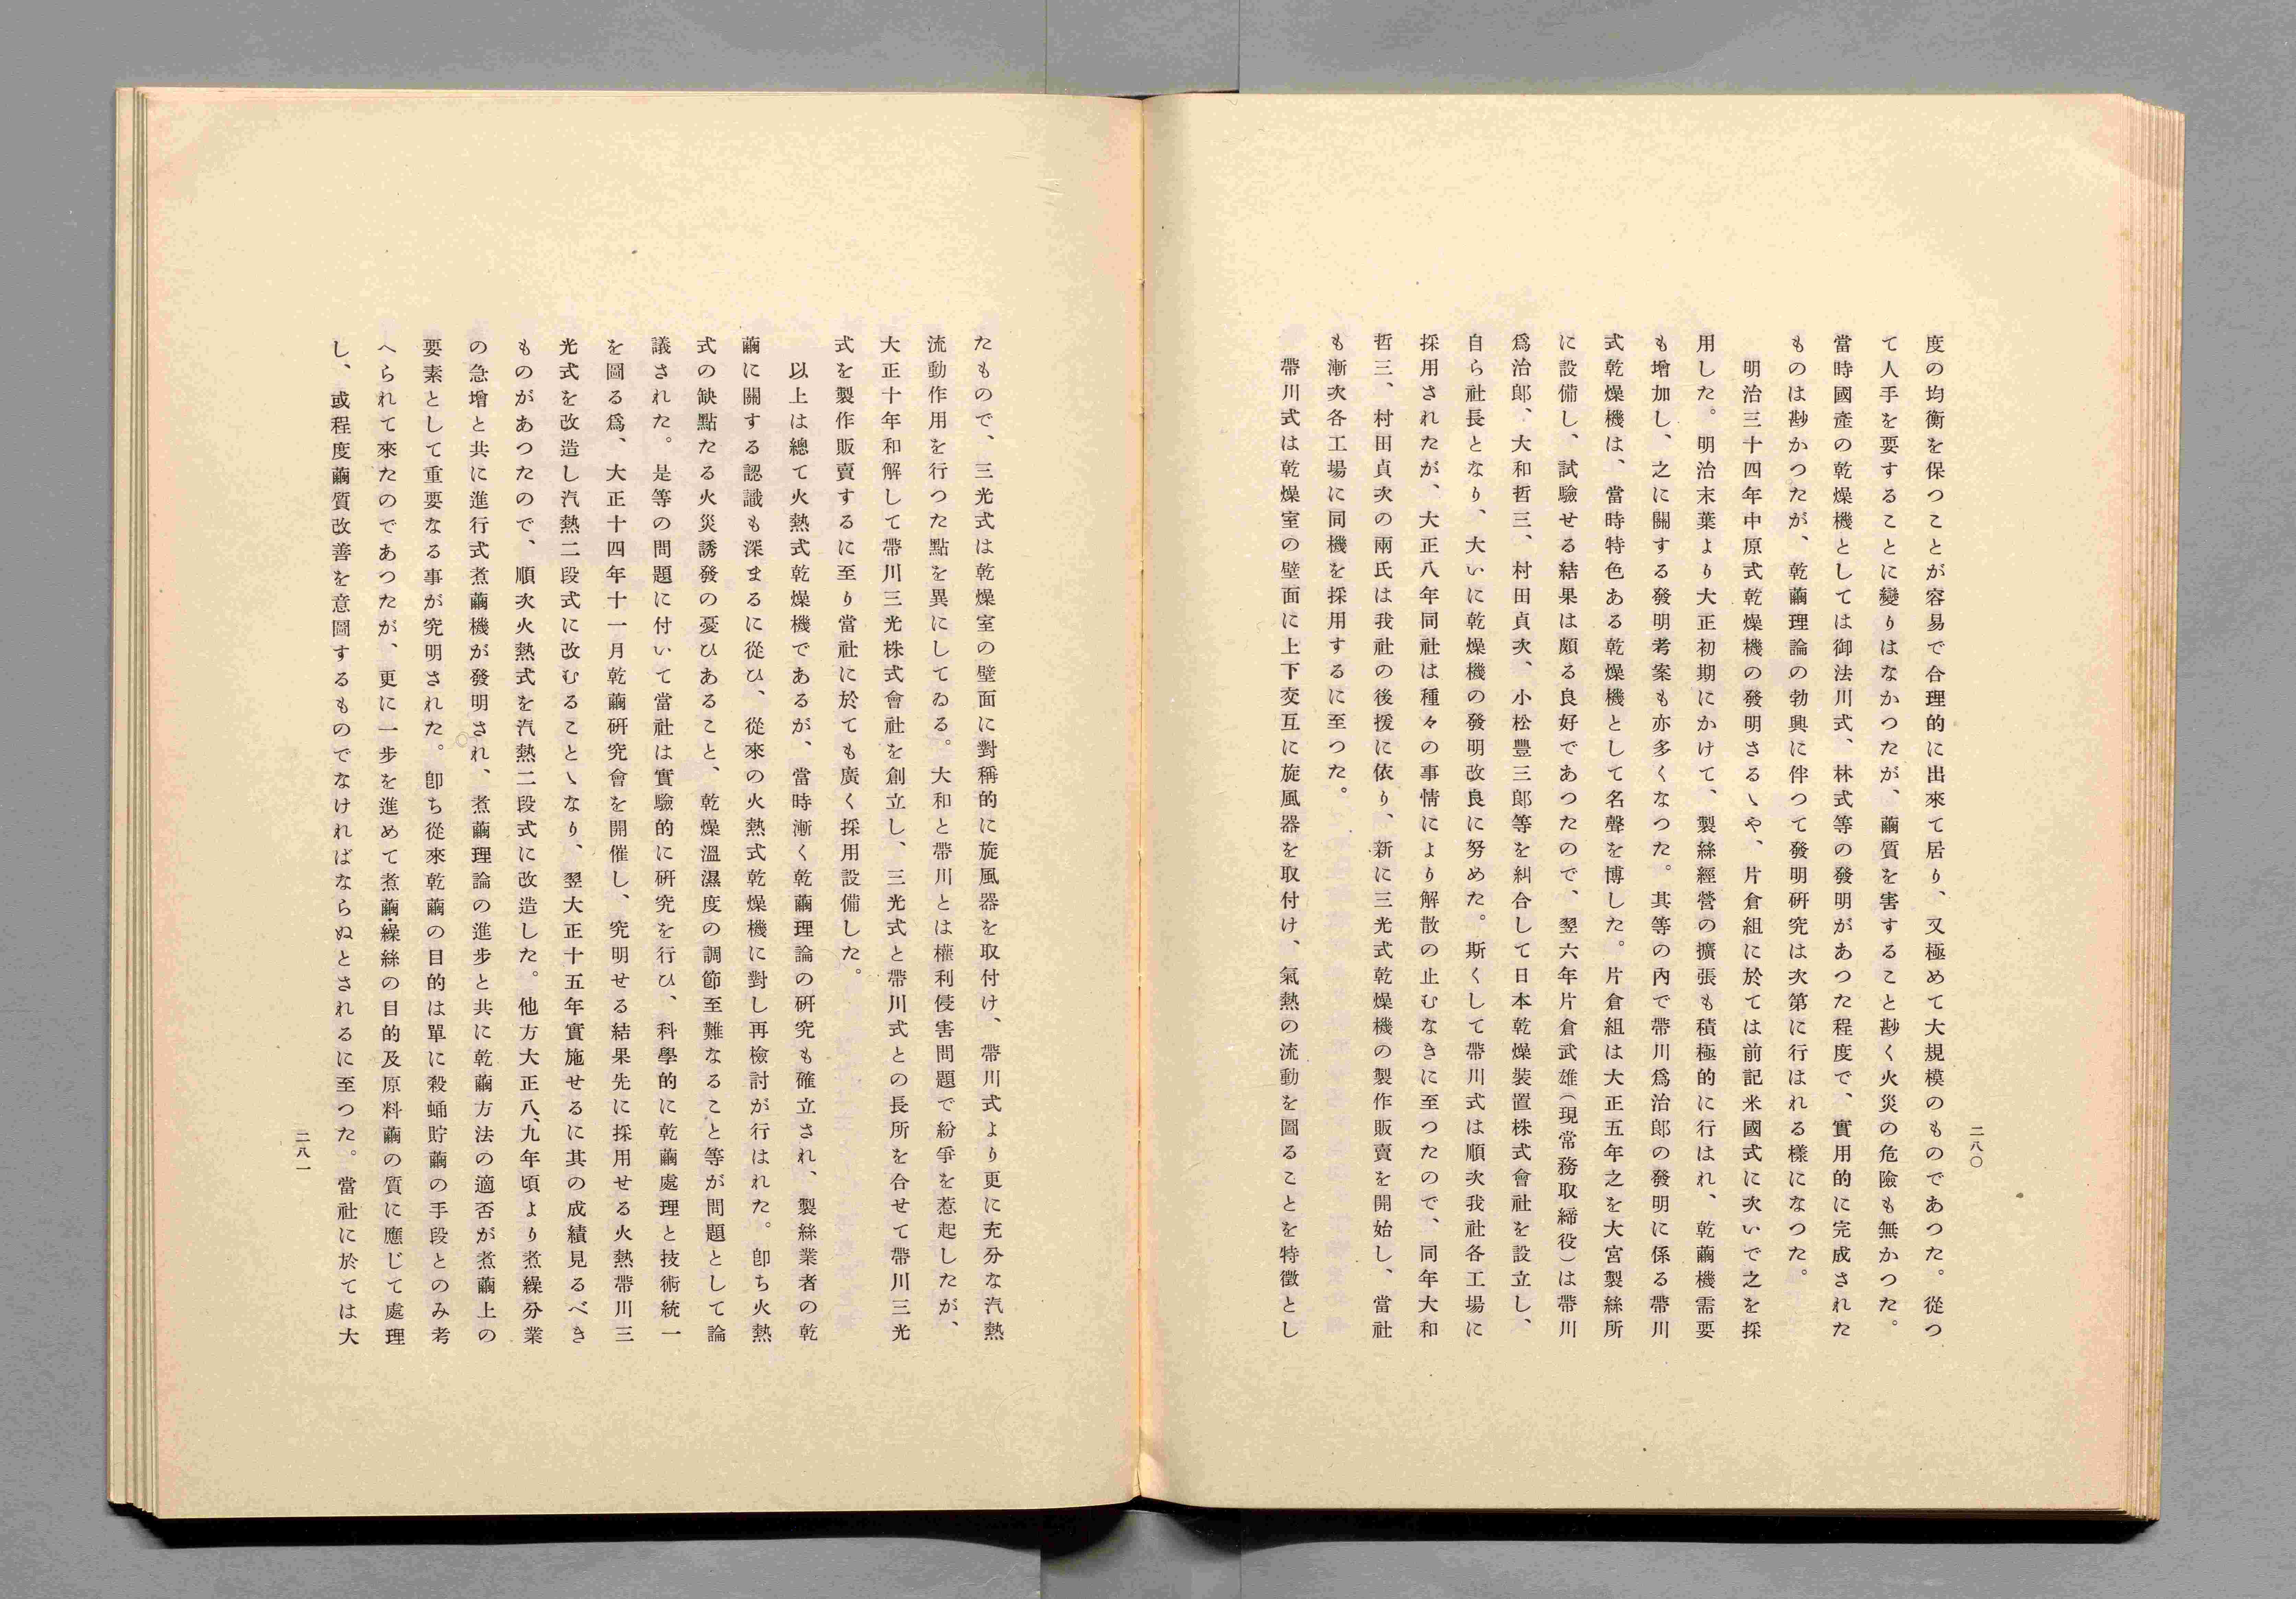 二八〇
度の均衡を保つことが容易で合理的に出來て居り、又極めて大規模のものであつた。從つ
て人手を要することに變りはなかつたが、繭質を害すること尠く火災の危險も無かつた。
當時國產の乾燥機としては御法川式、林式等の發明があつた程度で、實用的に完成された
ものは尠かつたが、乾繭理論の勃興に伴つて發明研究は次第に行はれる樣になつた。
明治三十四年中原式乾燥機の發明さるゝや、片倉組に於ては前記米國式に次いで之を採
用した。明治末葉より大正初期にかけて、製絲經營の擴張も積極的に行はれ、乾繭機需要
も增加し、之に關する發明考案も亦多くなつた。其等の內で帶川爲治郞の發明に係る帶川
式乾燥機は、當時特色ある乾燥機として名聲を博した。片倉組は大正五年之を大宮製絲所
に設備し、試驗せる結果は頗る良好であつたので、翌六年片倉武雄（現常務取締役）は帶川
爲治郞、大和哲三、村田貞次、小松豐三郞等を糾合して日本乾燥裝置株式會社を設立し、
自ら社長となり、大いに乾燥機の發明改良に努めた。斯くして帶川式は順次我社各工場に
採用されたが、大正八年同社は種々の事情により解散の止むなきに至つたので、同年大和
哲三、村田貞次の兩氏は我社の後援に依り、新に三光式乾燥機の製作販賣を開始し、當社
も漸次各工場に同機を採用するに至つた。
帶川式は乾燥室の壁面に上下交互に旋風器を取付け、氣熱の流動を圖ることを特徵とし
たもので、三光式は乾燥室の壁面に對稱的に旋風器を取付け、帶川式より更に充分な汽熱
流動作用を行つた點を異にしてゐる。大和と帶川とは權利侵害問題で紛爭を惹起したが、
大正十年和解して帶川三光株式會社を創立し、三光式と帶川式との長所を合せて帶川三光
式を製作販賣するに至り當社に於ても廣く採用設備した。
以上は總て火熱式乾燥機であるが、當時漸く乾繭理論の研究も確立され、製絲業者の乾
繭に關する認識も深まるに從ひ、從來の火熱式乾燥機に對し再檢討が行はれた。卽ち火熱
式の缺點たる火災誘發の憂ひあること、乾燥溫濕度の調節至難なること等が問題として論
議された。是等の問題に付いて當社は實驗的に研究を行ひ、科學的に乾繭處理と技術統一
を圖る爲、大正十四年十一月乾繭研究會を開催し、究明せる結果先に採用せる火熱帶川三
光式を改造し汽熱二段式に改むることゝなり、翌大正十五年實施せるに其の成績見るべき
ものがあつたので、順次火熱式を汽熱二段式に改造した。他方大正八、九年頃より煮繰分業
の急增と共に進行式煮繭機が發明され、煮繭理論の進步と共に乾繭方法の適否が煮繭上の
要素として重要なる事が究明された。卽ち從來乾繭の目的は單に殺蛹貯繭の手段とのみ考
へられて來たのであつたが、更に一步を進めて煮繭・繰絲の目的及原料繭の質に應じて處理
し、或程度繭質改善を意圖するものでなければならぬとされるに至つた。當社に於ては大
二八一